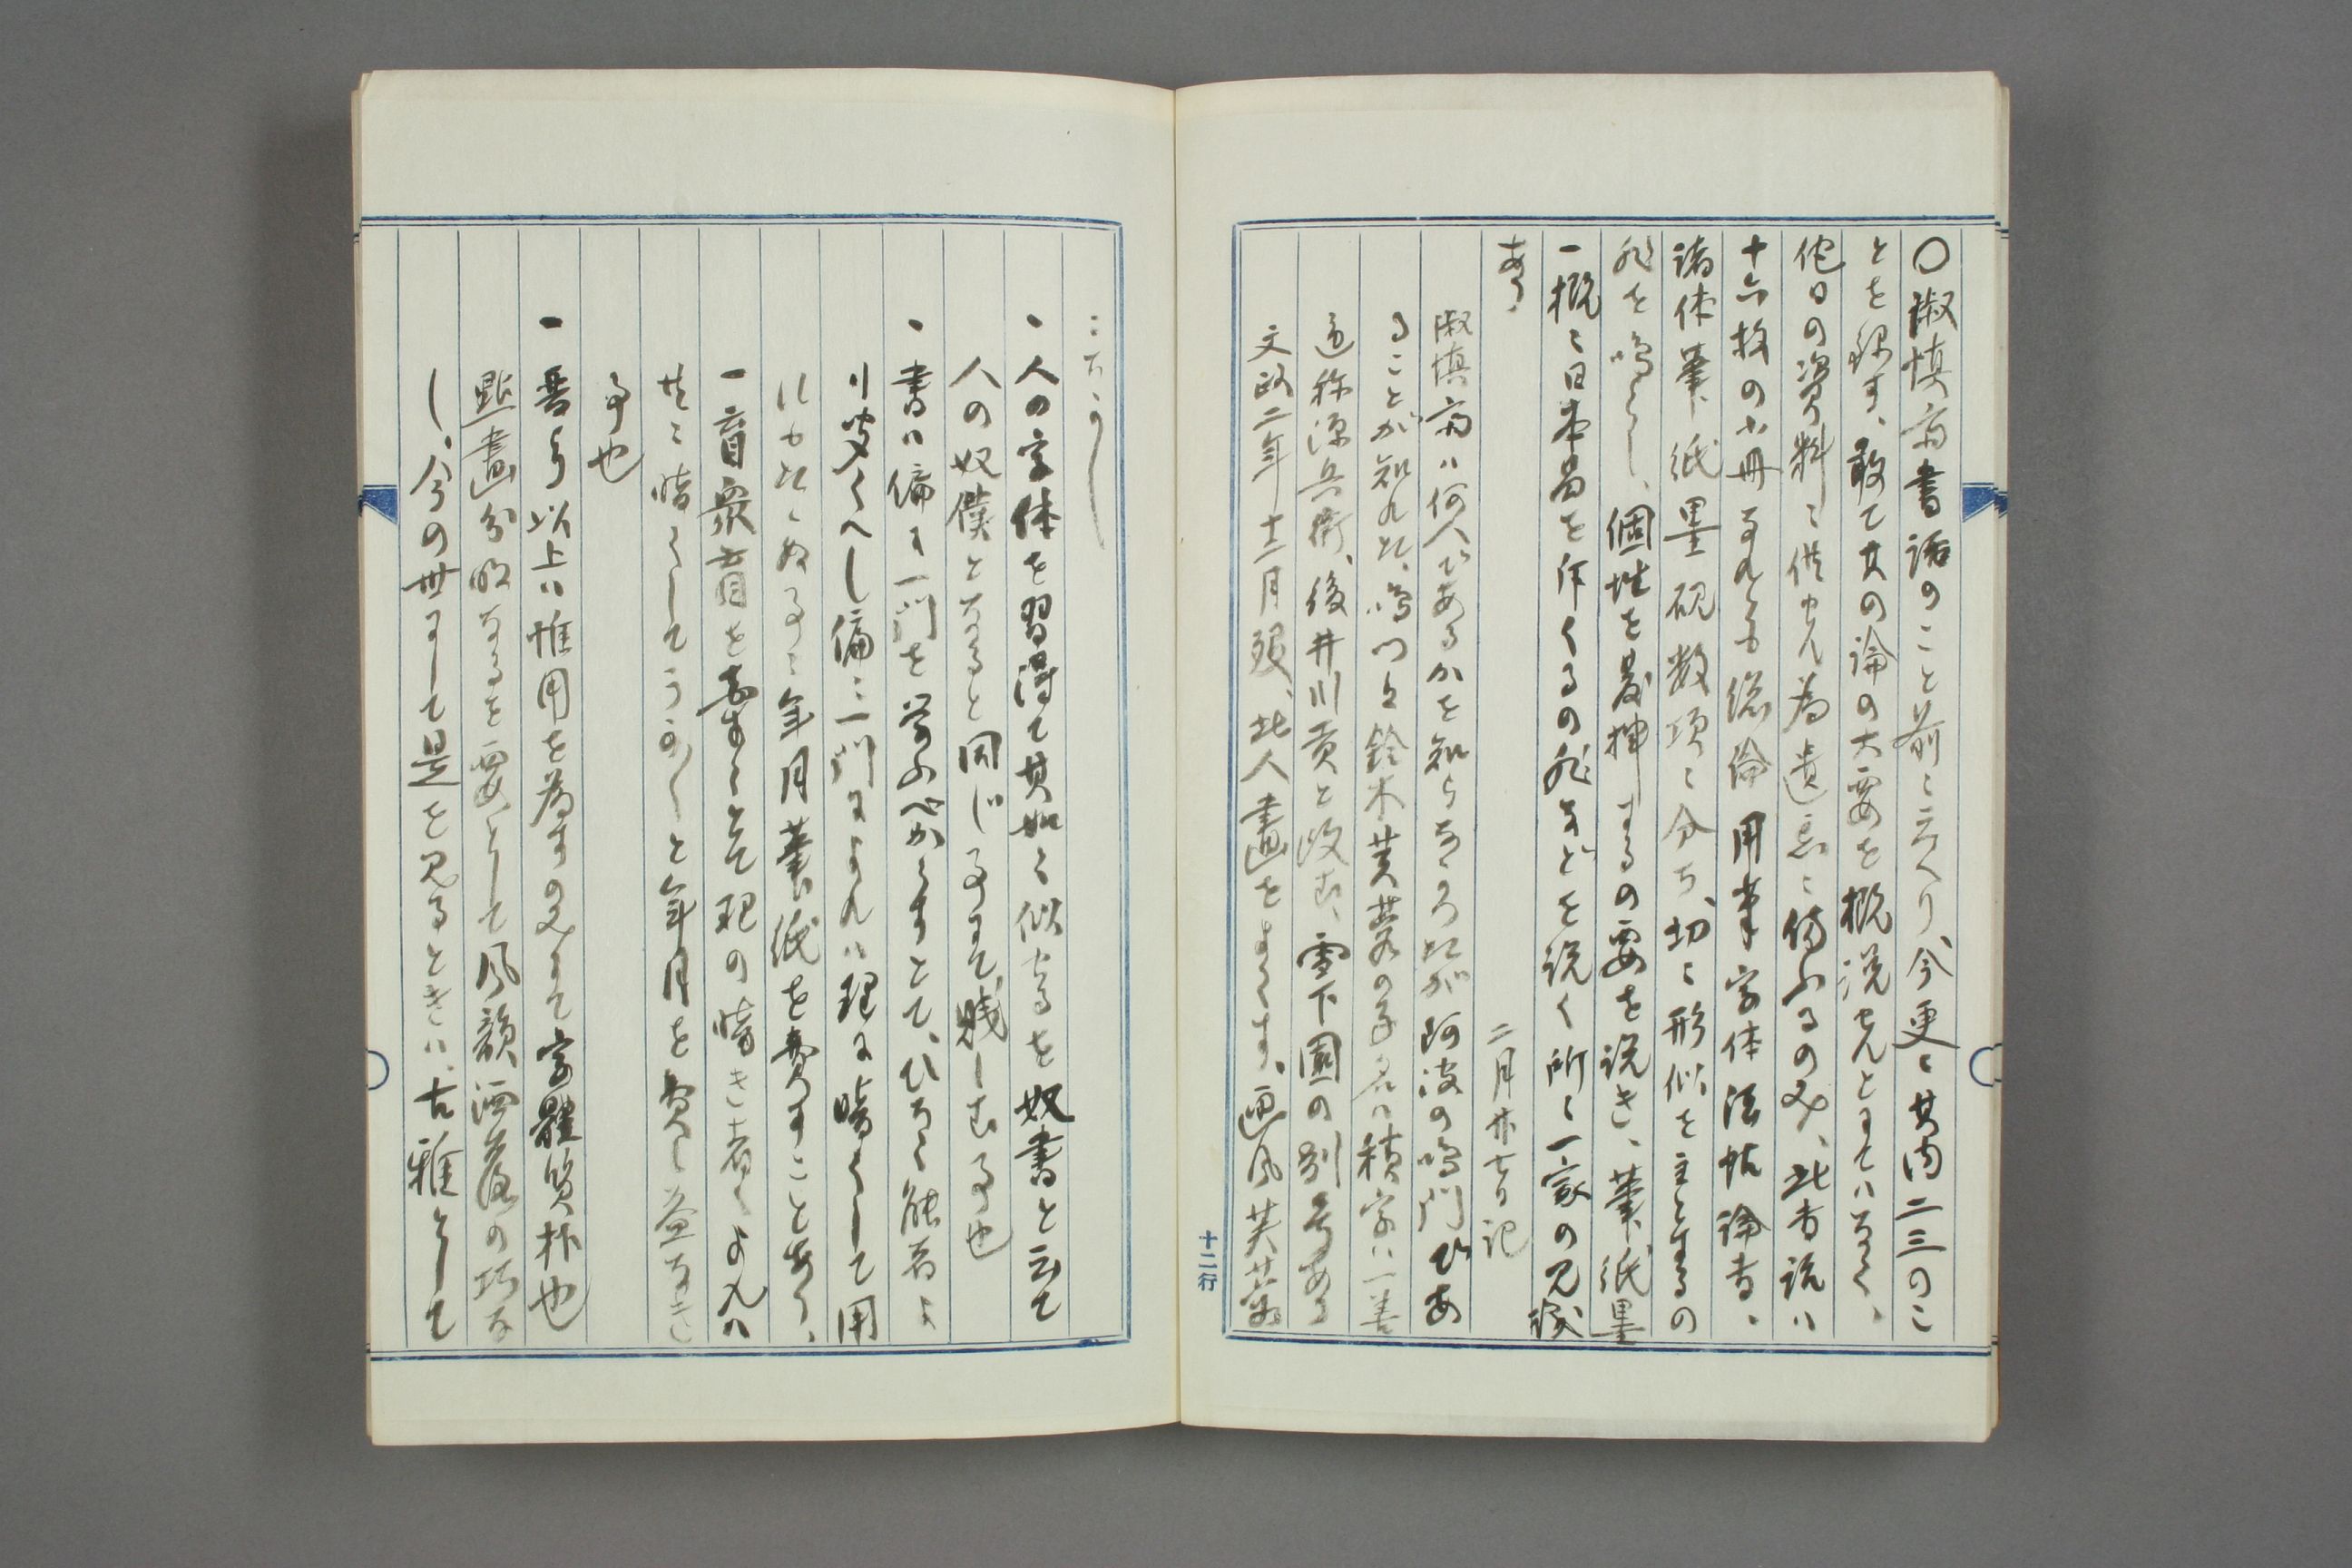 〇淑慎斎書話のこと前に云へり、今更に其内二三のこ
とを録す、敢て其の論の大要を概説せんとにてはなく、
他日の資料に供せん為遺忘に備ふるのみ、此書説は
十六枚の小冊なれども総論用筆字体法帖論書、
諸体筆紙墨硯数項に分ち、切に形似を主とするの
非を鳴らし、個性を発揮するの要を説き、筆紙墨
一概に日本品を斥くるの非などを説く所に一家の見識
あり
二月廿七日記
淑慎斎は何人であるかを知らなかつたが阿波の鳴門であ
ることが知れた、鳴門は鈴木芙蓉の子名は積字は一善
通称源兵衛、後井川貢と改む、雪下園の別号ある
文政二年十二月歿、此人画をよくす、画風芙蓉
十二行
こたかし
一人の字体を習得て其如く似するを奴書と云て
人の奴僕となると同じ事にて、賤しむ事也
一書は偏に一門を学ふべからすとて、ひろく能書よ
り受くへし偏に一門によれは理に暗くして用
にたたぬ事に年月筆紙を費すことあり、
一盲衆盲を をすくとて理の暗き者によれは
共に暗くしてうかうかと年月を費し益なき
事也
一晋より以上は惟用を為すのみにて字體質朴也
點畫分明なるを要として風韻洒落の巧な
し、今の世にして是を見るときは、古雅にして